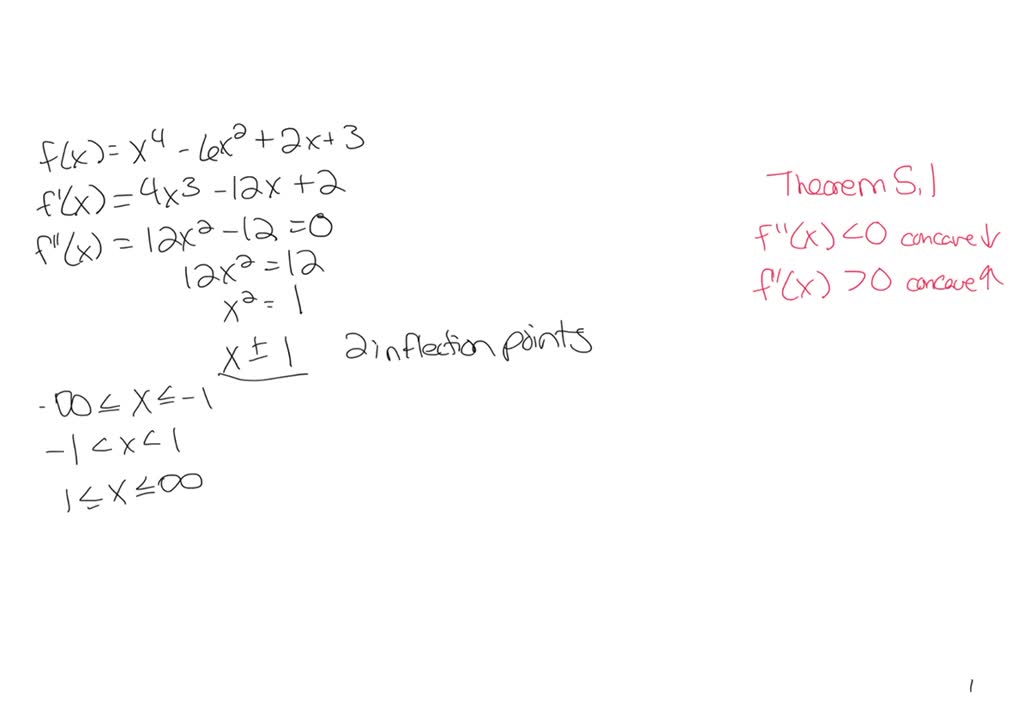 f(x) = x⁴ - 6x² + 2x + 3
f'(x) = 4x³ - 12x + 2
f''(x) = 12x² - 12 = 0
12x² = 12
x² = 1
x ± 1 2 inflection points
-∞ ≤ x ≤ -1
-1 < x < 1
1 ≤ x ≤ ∞
Theorem 5.1
f''(x) < 0 concave ↓
f''(x) > 0 concave ↑
1